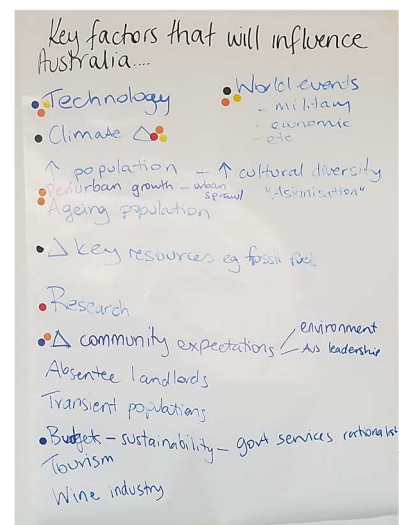 Key factors that will influence
Australia....
Technology
World events
- military
- economic
- etc
Climate Δ
↑ population + ↑ cultural diversity
Periurban growth - urban sprawl "Asianisation"
Ageing population
Δ Key resources eg fossil fuel
Research
Δ community expectations
environment
Aus leadership
Absentee landlords
Transient populations
Budget - sustainability - govt services
Tourism
Wine industry